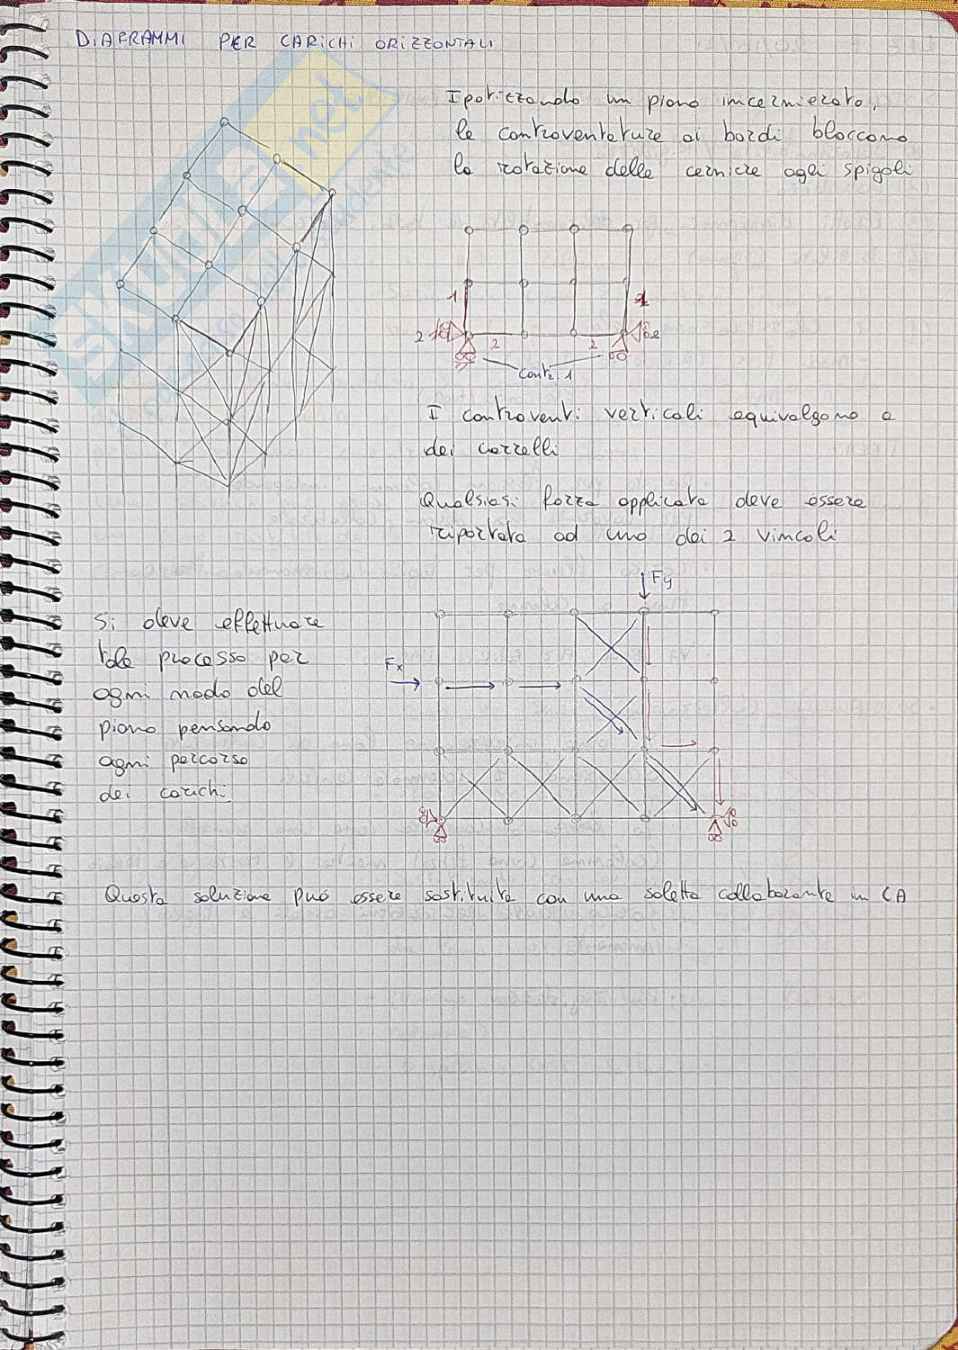 DIAFRAMMI PER CARICHI ORIZZONTALI
Ipotizzando un piano incernierato,
le controventature ai bordi bloccano
la rotazione delle cerniere agli spigoli
1
1
2
2
2
2
contr. 1
I controventi verticali equivalgono a
dei carrelli
Qualsiasi forza applicata deve essere
riportata ad uno dei 2 vincoli
Fy
Si deve effettuare
tale processo per
ogni nodo del
piano pensando
ogni percorso
dei carichi
Fx
Questa soluzione può essere sostituita con una soletta collaborante in CA
SKUOLA.net